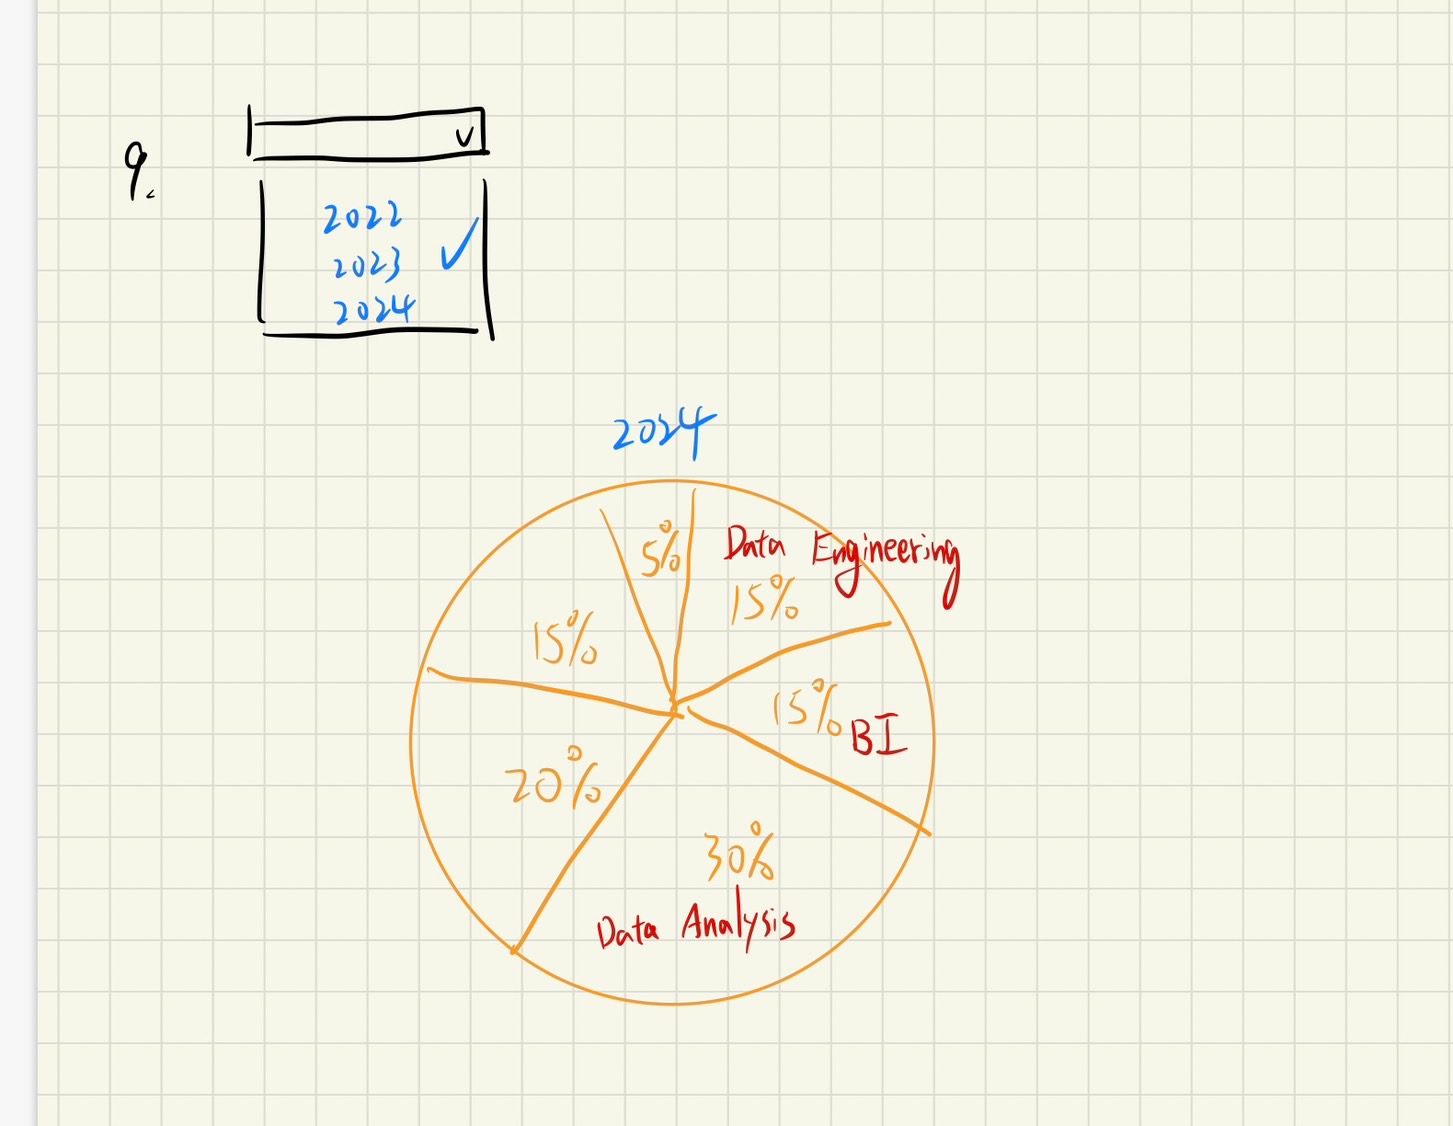 9.
2022
2023 ✓
2024
2024
5%
Data Engineering
15%
15%
15%
BI
20%
30%
Data Analysis